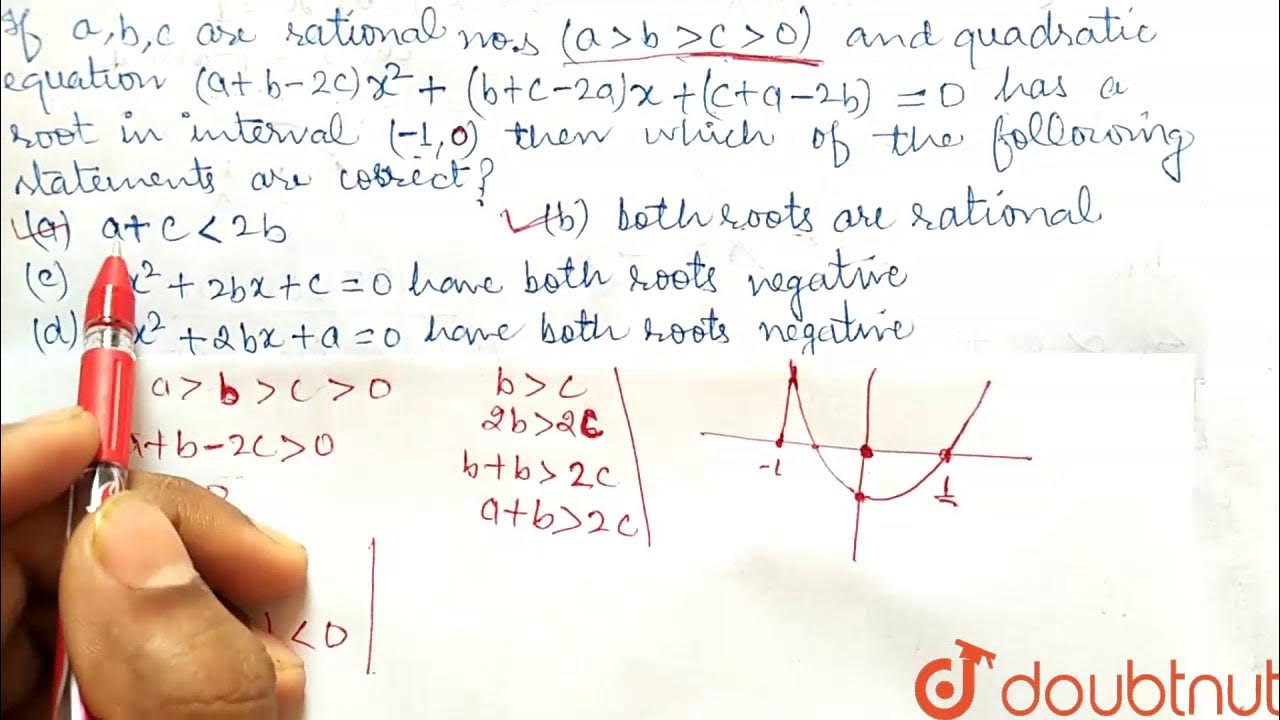 If a,b,c are rational no.s (a>b>c>0) and quadratic
equation (a+b-2c)x²+(b+c-2a)x+(c+a-2b)=0 has a
root in interval (-1,0) then which of the following
statements are correct?
(a) a+c<2b (b) both roots are rational
(c) x²+2bx+c=0 have both roots negative
(d) x²+2bx+a=0 have both roots negative
a>b>c>0
+b-2c>0
<0
b>c
2b>2c
b+b>2c
a+b>2c
-1
1
doubtnut